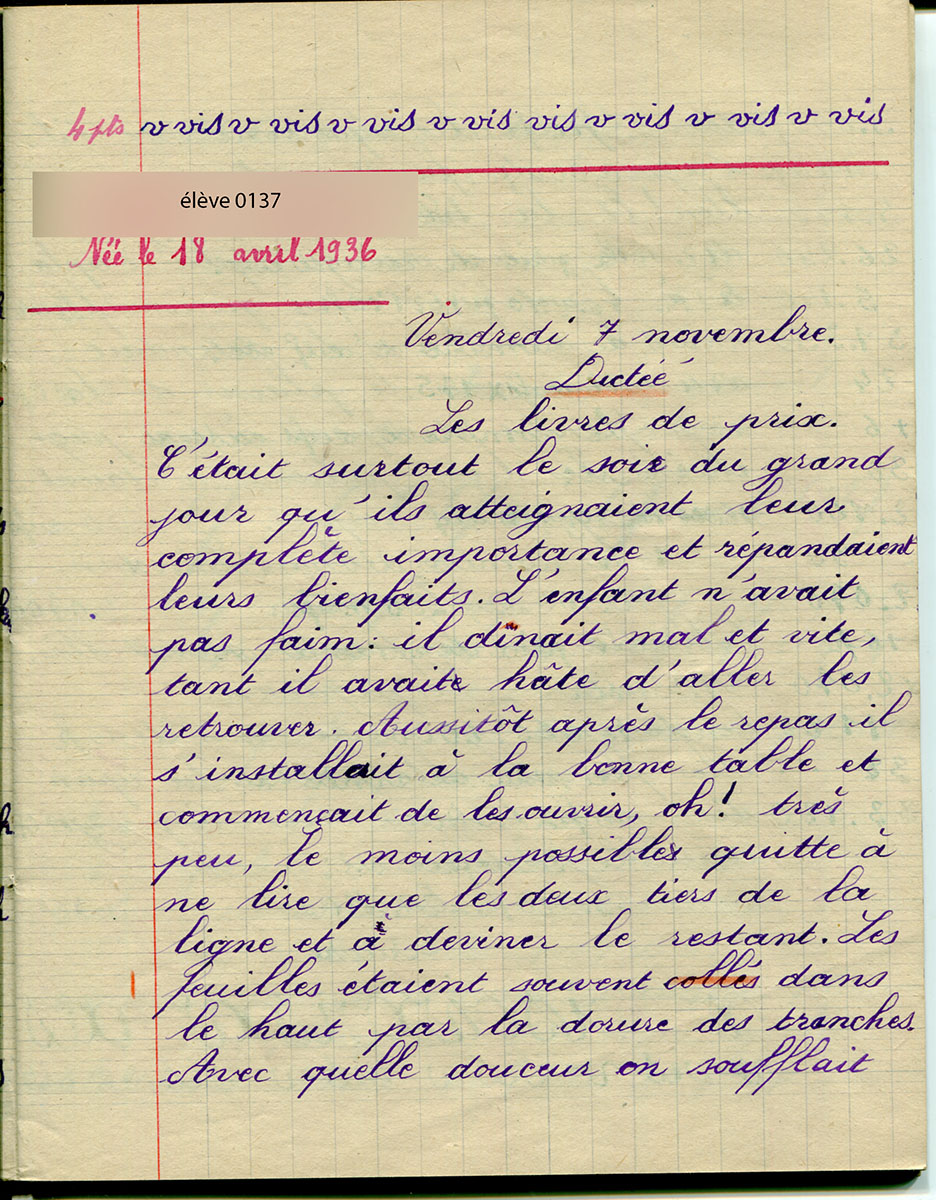 4 pts v vis v vis v vis v vis vis v vis v vis v vis
élève 0137
Néé le 18 avril 1936
Vendredi 7 novembre.
Dictéé
Les livres de prix.
C'était surtout le soir du grand
jour qu'ils atteignaient leur
complète importance et répandaient
leurs bienfaits. L'enfant n'avait
pas faim : il dînait mal et vite,
tant il avait hâte d'aller les
retrouver. Aussitôt après le repas il
s'installait à la bonne table et
commençait de les ouvrir, oh! très
peu, le moins possible quitte à
ne lire que les deux tiers de la
ligne et à deviner le restant. Les
feuilles étaient souvent collés dans
le haut par la dorure des tranches.
Avec quelle douceur on soufflait